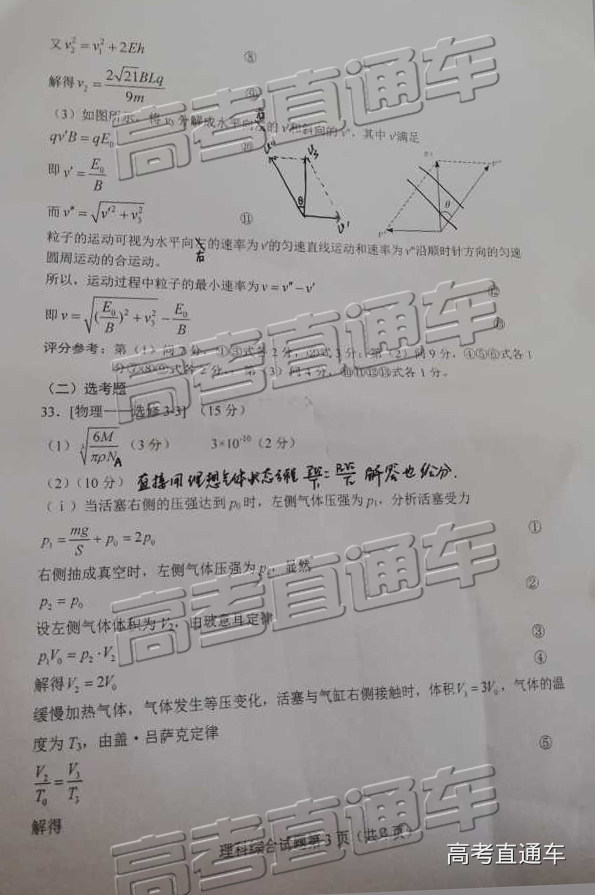 又 v₂² = v₁² + 2Eh
⑧
解得 v₂ = 2√21BLq / 9m
⑨
(3)如图所示,将 v₃ 分解成水平向右的 v′和斜向的 v″,其中 v′满足
qv′B = qE₀
⑩
即 v′ = E₀ / B
v₃
θ
v′
θ
而 v″ = √(v′² + v₃²)
⑪
粒子的运动可视为水平向右的速率为 v′的匀速直线运动和速率为 v″沿顺时针方向的匀速
圆周运动的合运动。
所以,运动过程中粒子的最小速率为 v = v″ − v′
⑫
即 v = √((E₀/B)² + v₃²) − E₀/B
⑬
评分参考:第(1)问
第(2)问 9 分,④⑤⑥式各 1
分
第(3)问 4 分,⑩⑪⑫⑬式各 1 分。
(二)选考题
33.[物理——选修 3-3](15 分)
(1)³√(6M / πρN_A)(3 分) 3×10⁻¹⁰(2 分)
(2)(10 分) 直接用理想气体状态方程 解答也给分.
(ⅰ)当活塞右侧的压强达到 p₀ 时,左侧气体压强为 p₁,分析活塞受力
p₁ = mg/S + p₀ = 2p₀
①
右侧抽成真空时,左侧气体压强为 p₂,显然
②
p₂ = p₀
设左侧气体体积为 V₂,由玻意耳定律
③
p₁V₀ = p₂·V₂
④
解得 V₂ = 2V₀
缓慢加热气体,气体发生等压变化,活塞与气缸右侧接触时,体积 V₃ = 3V₀,气体的温
度为 T₃,由盖·吕萨克定律
⑤
V₂/T₀ = V₃/T₃
解得
理科综合试题第 3 页(共 8 页)
高考直通车
高考直通车
高考直通车
高考直通车
高考直通车
高考直通车